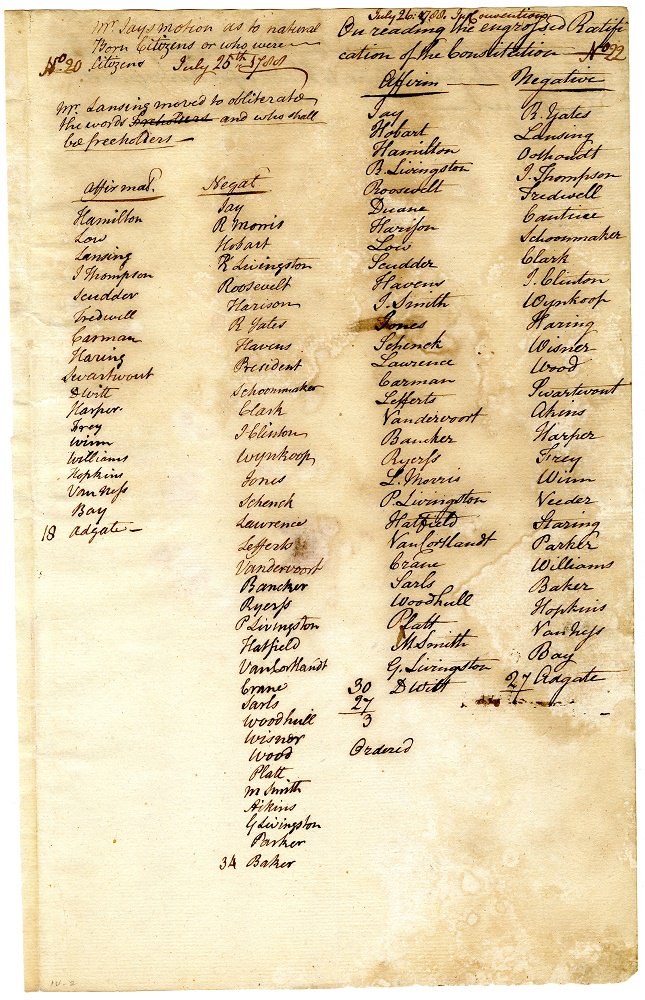 Mr Jays motion as to natural
Born Citizens or who were
No. 20 Citizens July 25th 1788
Mr. Lansing moved to obliterate
the words freeholders and who shall
be freeholders
Affirmat. Negat
Hamilton
Low
Lansing
J Thompson
Scudder
Tredwell
Carman
Haring
Swartwout
DWitt
Harper
Frey
Winn
Williams
Hopkins
Van Ness
Bay
18 Adgate
Jay
R Morris
Hobart
R Livingston
Roosevelt
Harison
R. Yates
Havens
President
Schoonmaker
Clark
J Clinton
Wynkoop
Jones
Schenck
Lawrence
Lefferts
Vandervoort
Bancker
Ryerss
P Livingston
Hatfield
Van Cortlandt
Crane
Sarls
Woodhull
Wisner
Wood
Platt
M Smith
Aikins
G Livingston
Parker
34 Baker
July 26: 1788. In Convention
On reading the engrossed Ratifi
cation of the Constitution No 22
Affirm Negative
Jay
Hobart
Hamilton
R. Livingston
Roosevelt
Duane
Harison
Low
Scudder
Havens
J. Smith
Jones
Schenck
Lawrence
Carman
Lefferts
Vandervoort
Bancker
Ryerss
L. Morris
P. Livingston
Hatfield
Van Cortlandt
Crane
Sarls
Woodhull
Platt
M Smith
G. Livingston
30 D Witt
27
3
Ordered
R. Yates
Lansing
Oothoudt
J. Thompson
Tredwell
Cantine
Schoonmaker
Clark
J. Clinton
Wynkoop
Haring
Wisner
Wood
Swartwout
Akins
Harper
Frey
Winn
Veeder
Staring
Parker
Williams
Baker
Hopkins
Van Ness
Bay
27 Adgate
IV-2